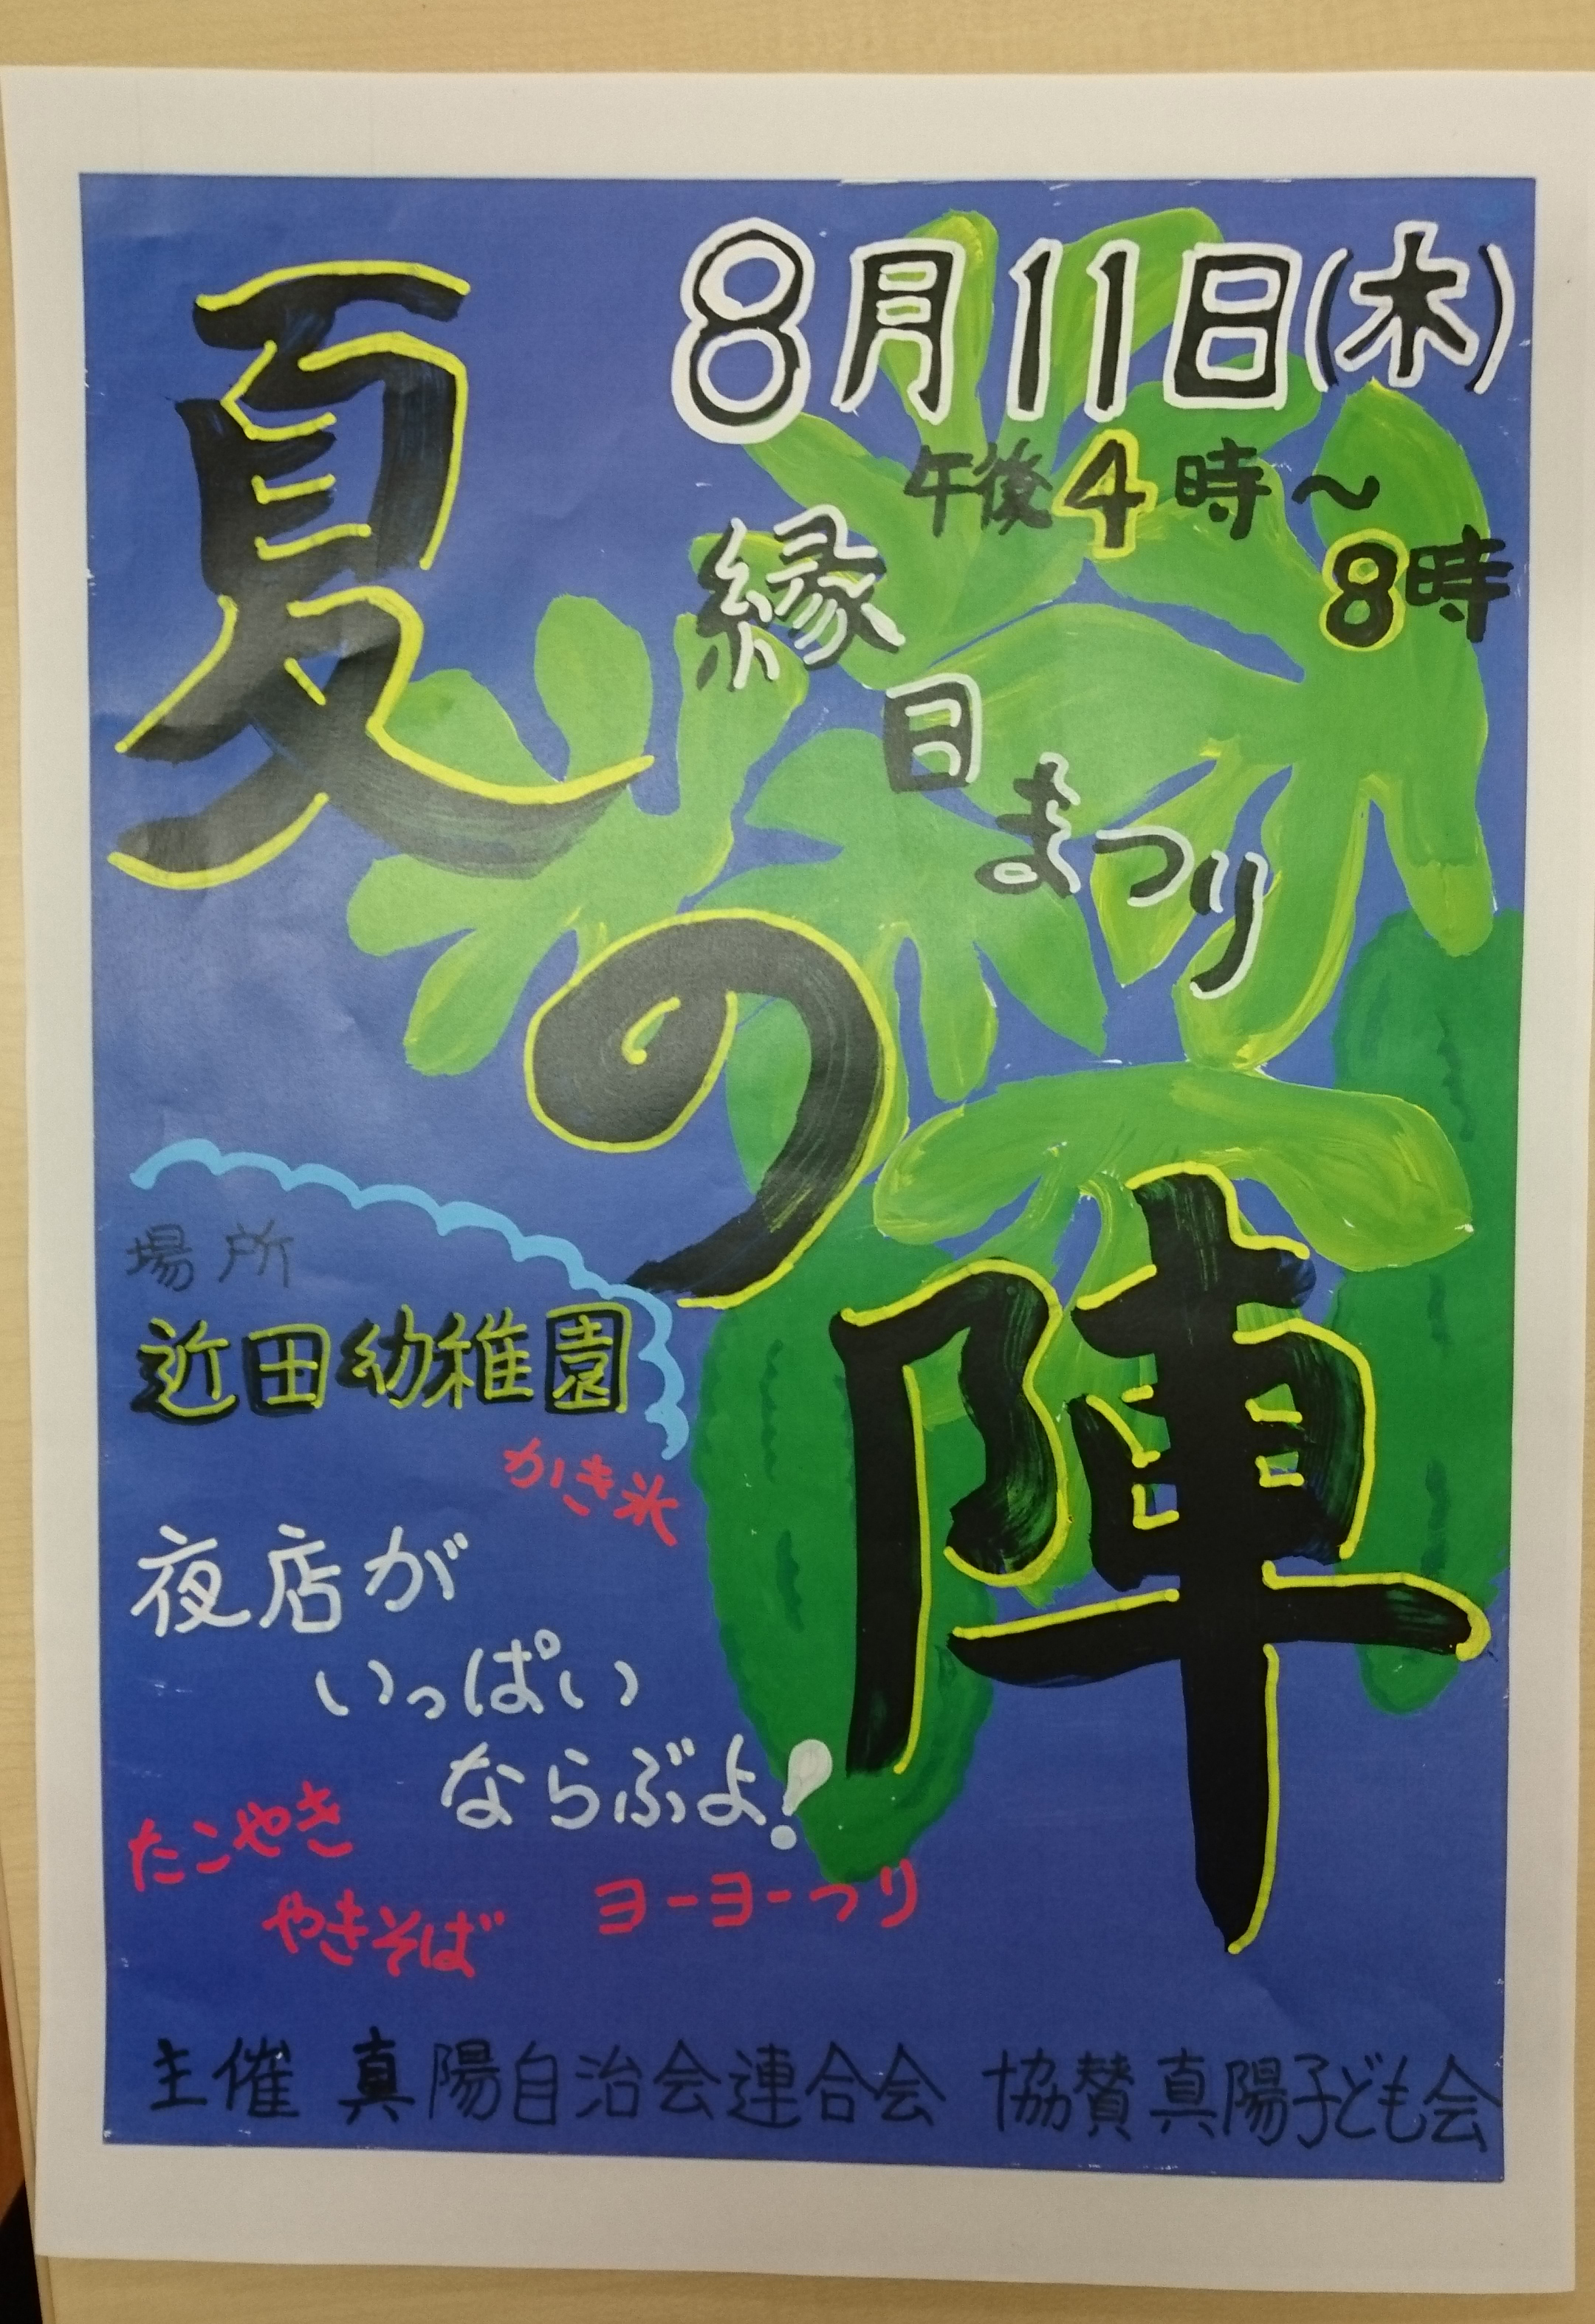 8月11日(木)
午後4時～
8時
縁日まつり
夏の陣
場所
近田幼稚園
かき氷
夜店が
いっぱい
ならぶよ!
たこやき
やきそば
ヨーヨーつり
主催 真陽自治会連合会 協賛 真陽子ども会